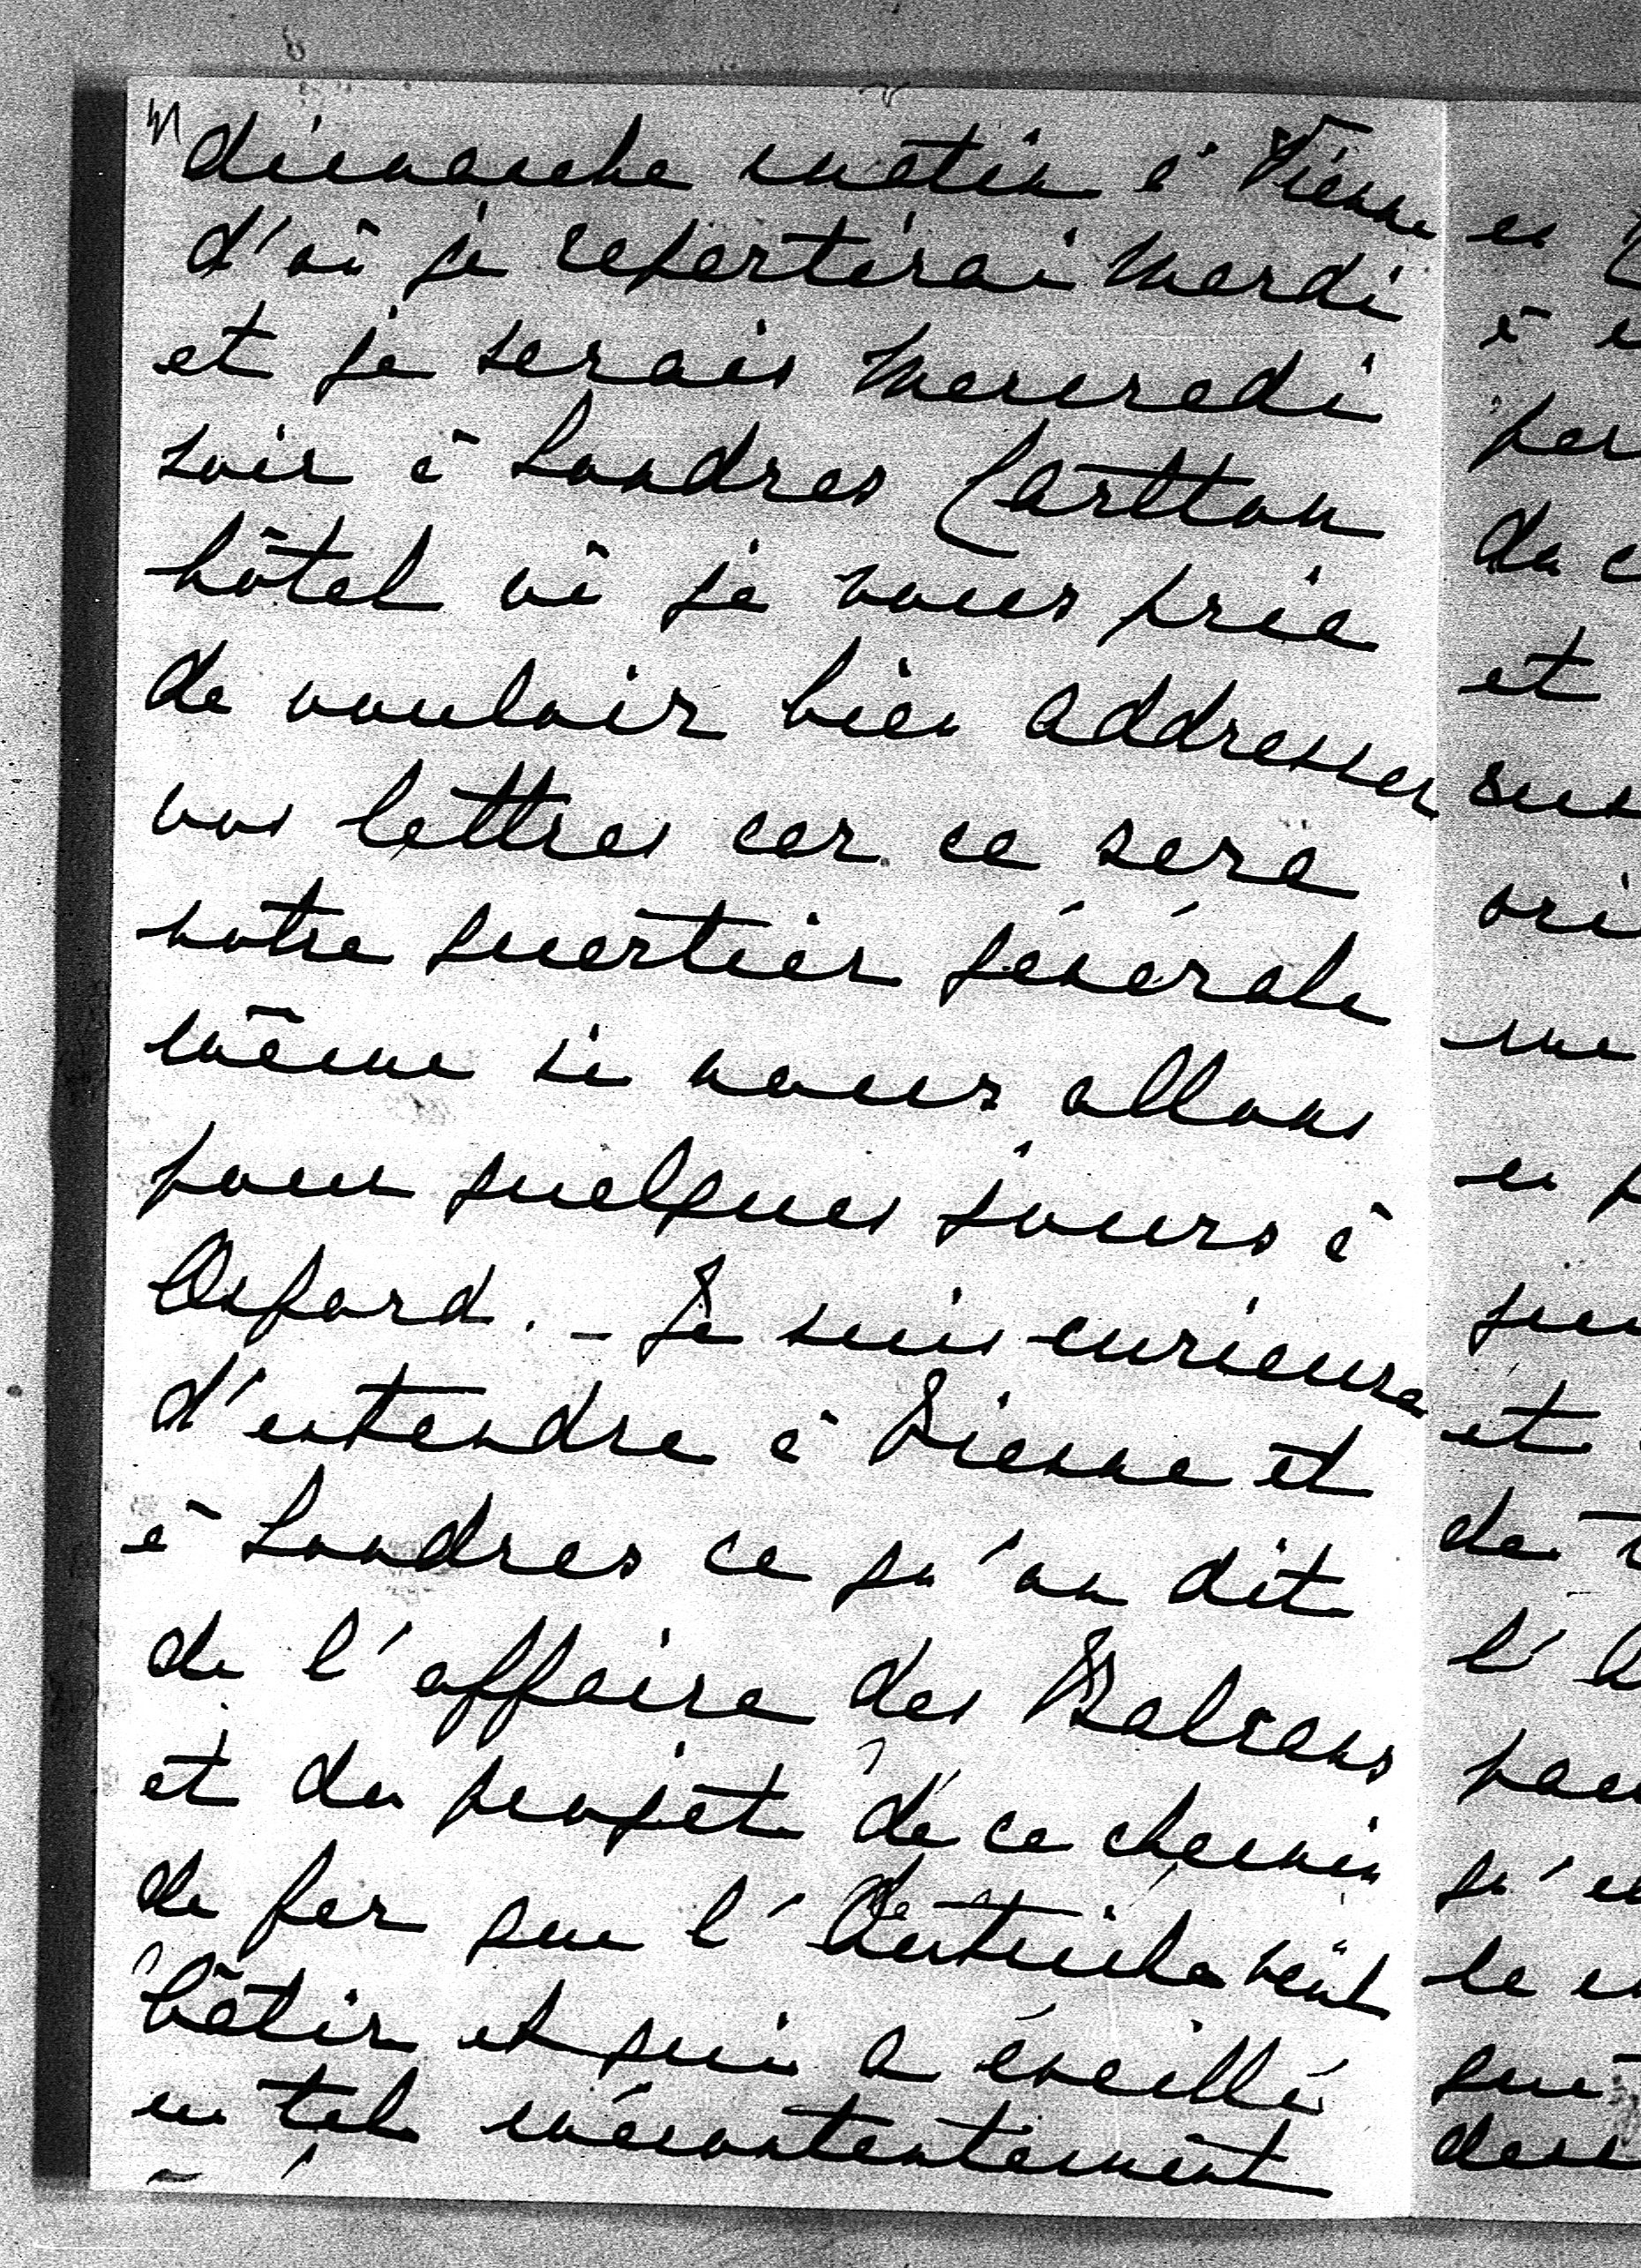 dimanche matin à Vienne
d'où je repartirai Mardi
et je serais Mercredi
soir à Londres Carlton
hôtel où je vous prie
de vouloir bien addresser
vos lettres car ce sera
notre quartier générale
même si nous allons
pour quelques jours à
Oxford. – Je suis curieuse
d'entendre à Vienne et
à Londres ce qu'on dit
de l'affaire des Balcans
et du projet de ce chemin
de fer que l'Autriche veut
bâtir et qui a éveillé
un tel mécontentement
en
à
per
du c
et
sus
ori
me
en p
et
de
l'
qu'e
le